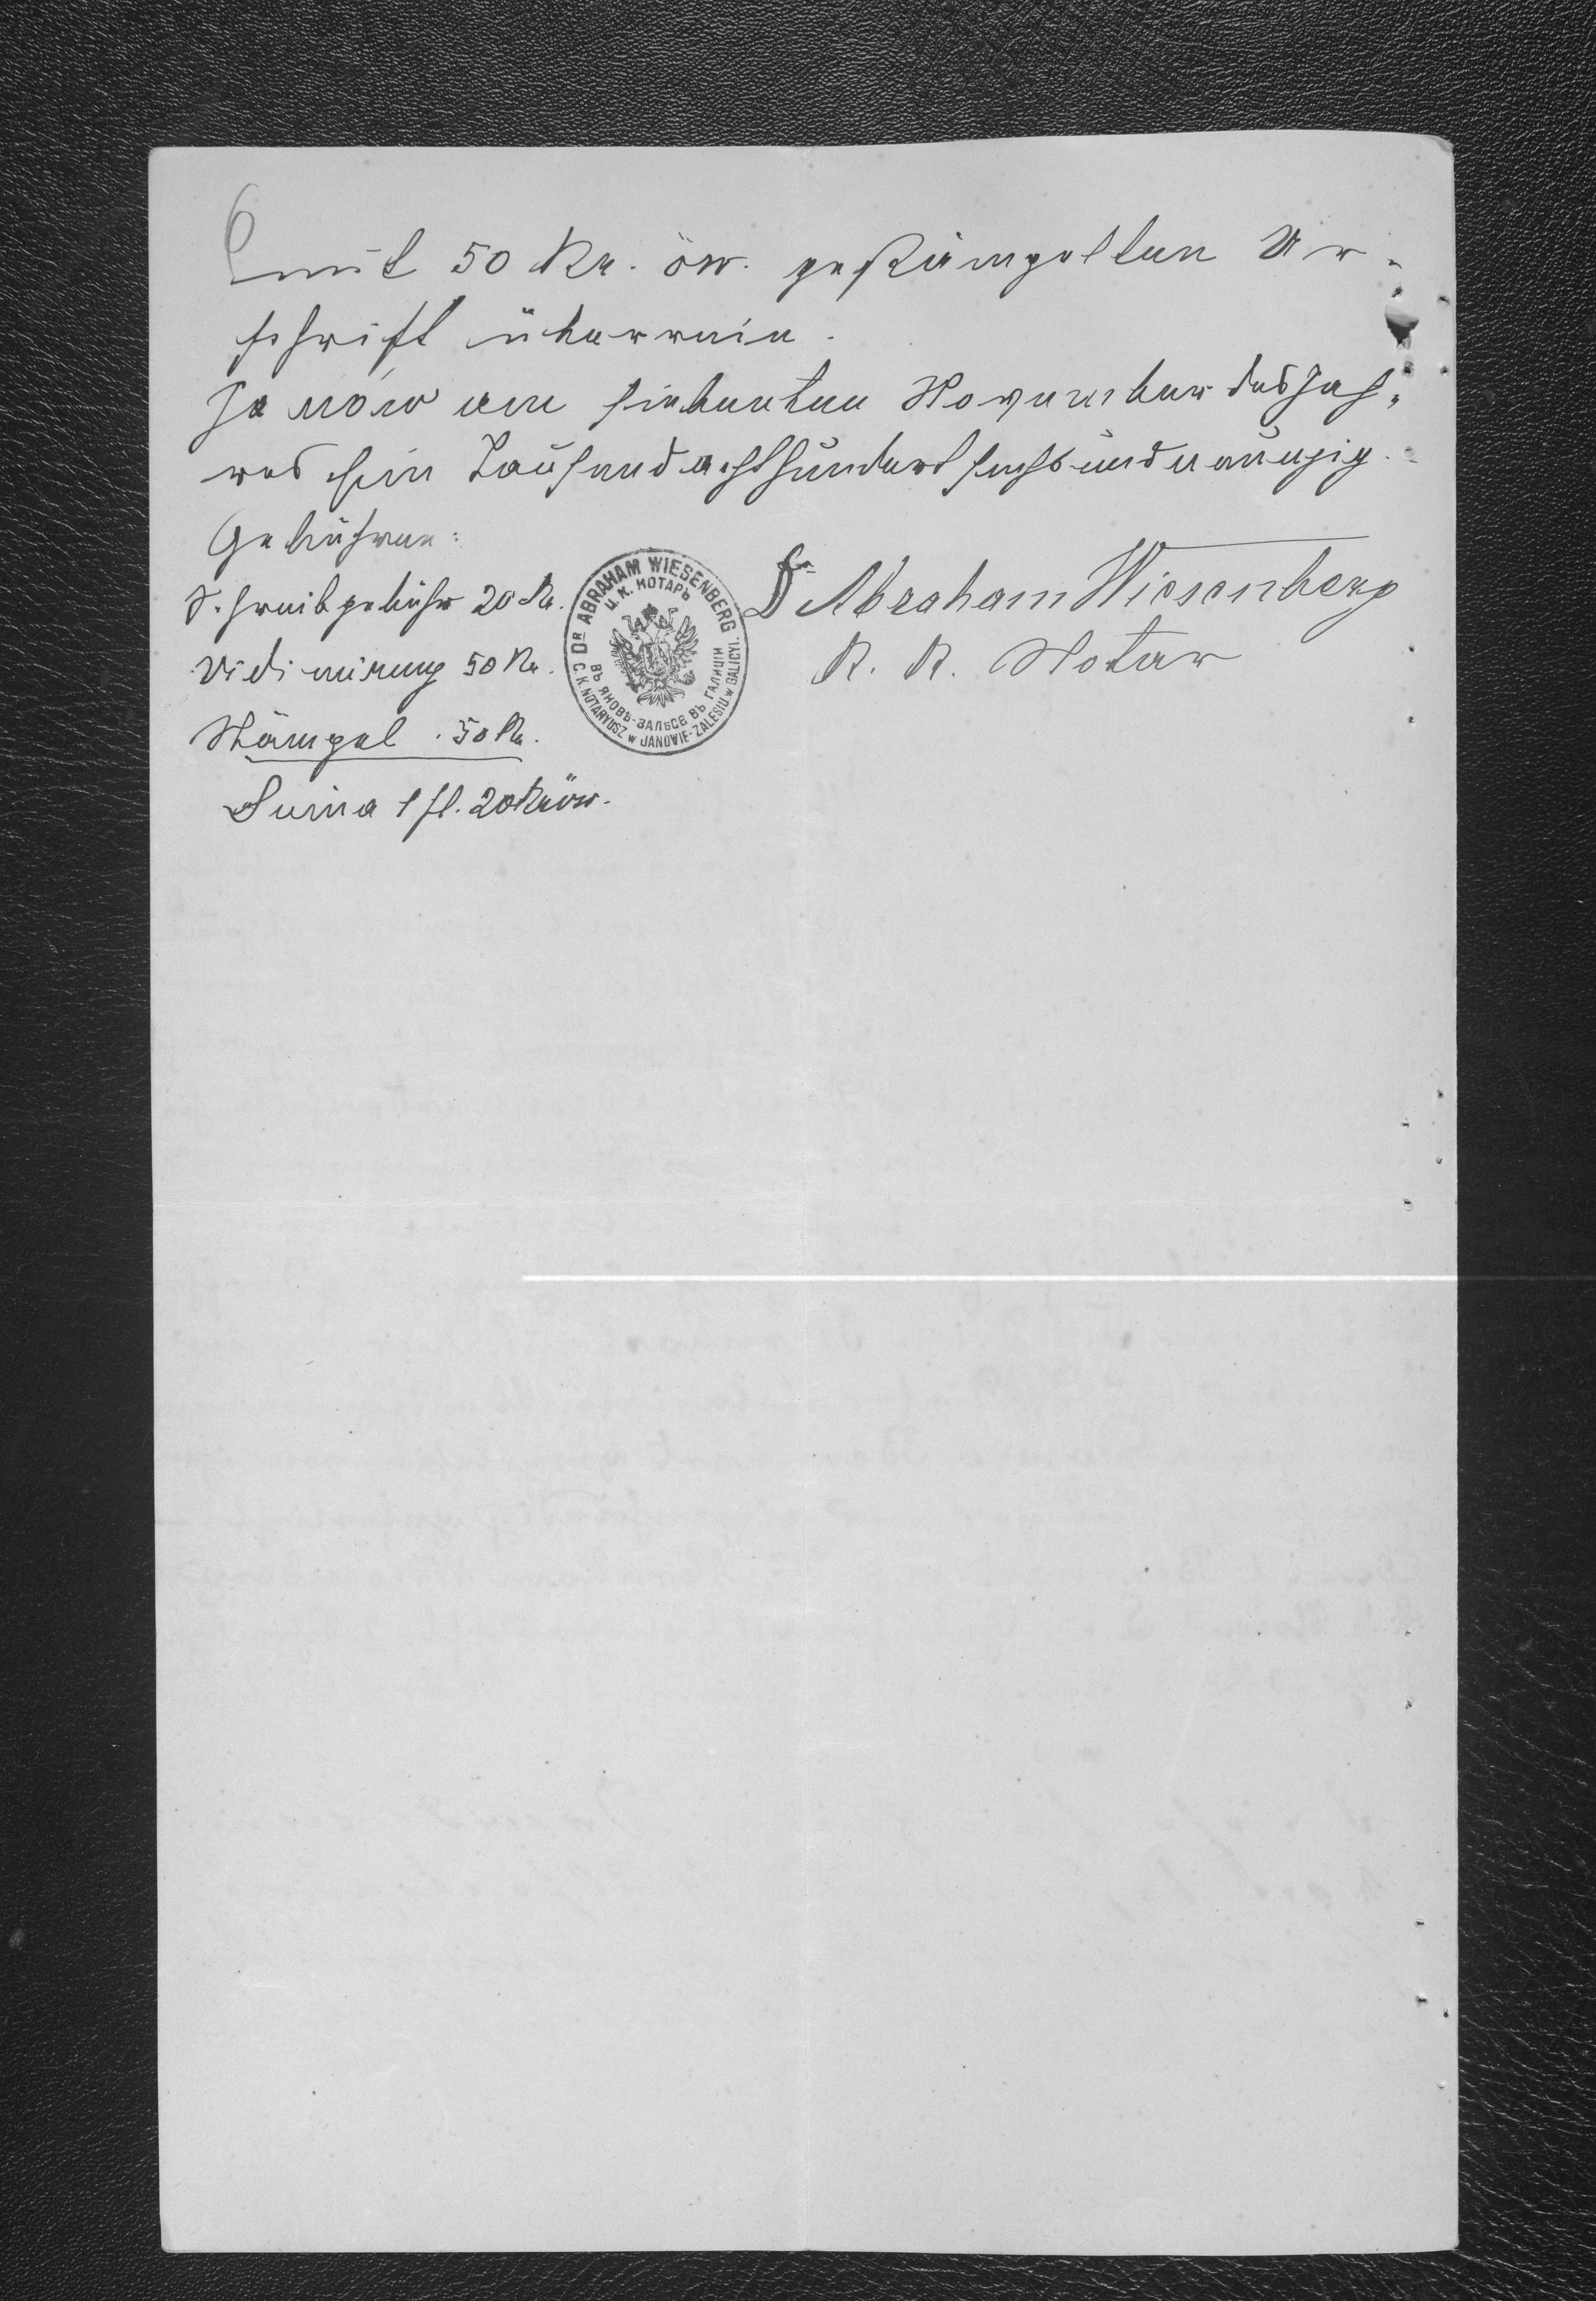 6
mit 50 Kr. öw. gestämpelten Ur-
schrift überrein.
Janów am siebenten November des Jah-
res Ein Tausend achthundert sechs und neunzig.
Gebühren:
Schreibgebühr 20 Kr.
Vidimirung 50 Kr.
Stämpel . 50 Kr.
Suma 1 fl. 20 Kr öw.
Dr ABRAHAM WIESENBERG
Ц. К. НОТАРЪ
ВЪ ЯНОВѢ-ЗАЛѢСЕ ВЪ ГАЛИЦІИ
C. K. NOTARYUSZ w JANOWIE-ZALESIU w GALICYI.
Dr Abraham Wiesenberg
K. K. Notar